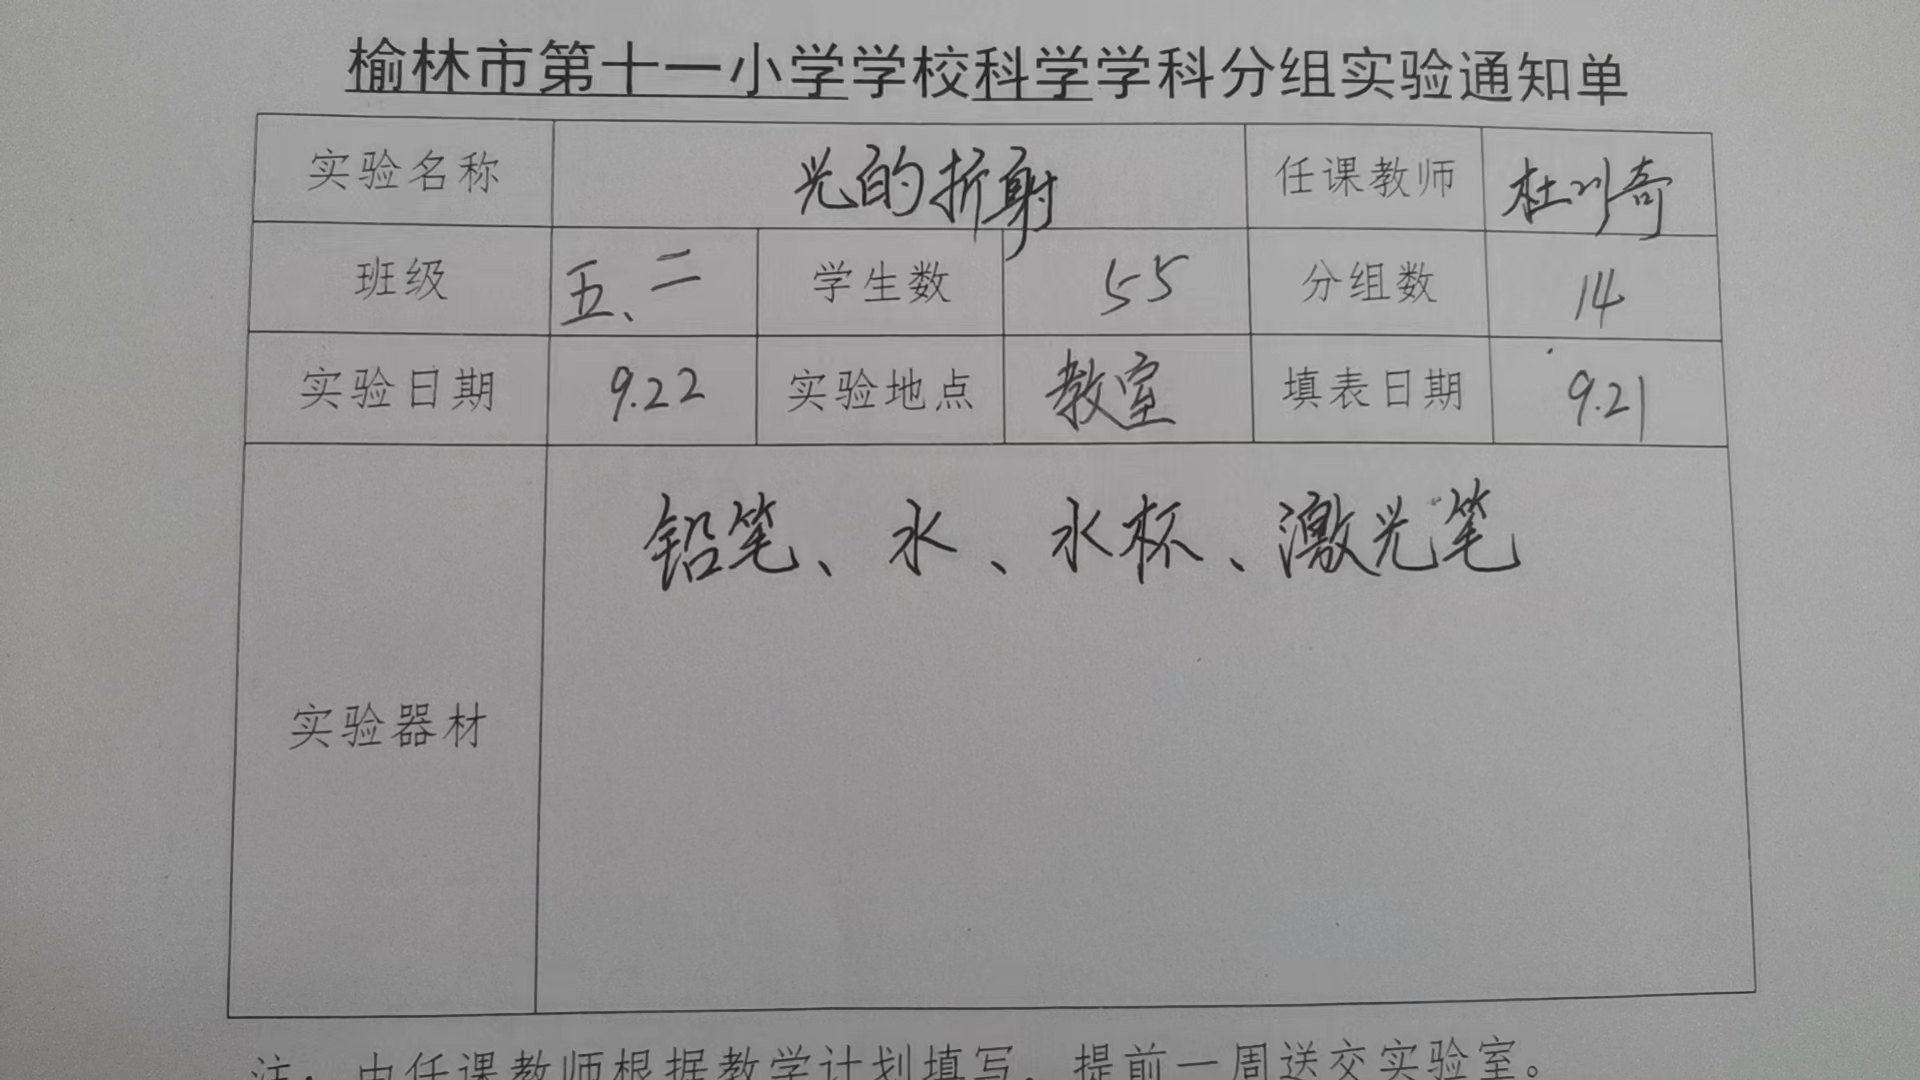 榆林市第十一小学学校科学学科分组实验通知单
实验名称 光的折射 任课教师 杜川奇
班级 五、二 学生数 55 分组数 14
实验日期 9.22 实验地点 教室 填表日期 9.21
实验器材 铅笔、水、水杯、激光笔
注：由任课教师根据教学计划填写，提前一周送交实验室。